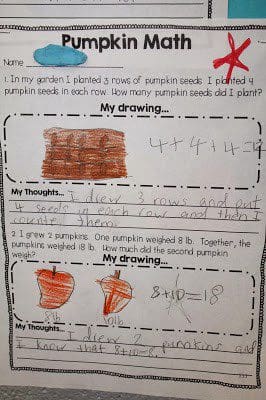 Pumpkin Math
Name
1. In my garden I planted 3 rows of pumpkin seeds. I planted 4
pumpkin seeds in each row. How many pumpkin seeds did I plant?
My drawing...
4+4+4=
My Thoughts... I drew 3 rows and put
4 seeds in each row and then I
counted them.
2. I grew 2 pumpkins. One pumpkin weighed 8 lb. Together, the
pumpkins weighed 18 lb. How much did the second pumpkin
weigh?
My drawing...
8+10=18
8lb 10lb
My Thoughts... I drew 2 pumpkins and
I know that 8+10=